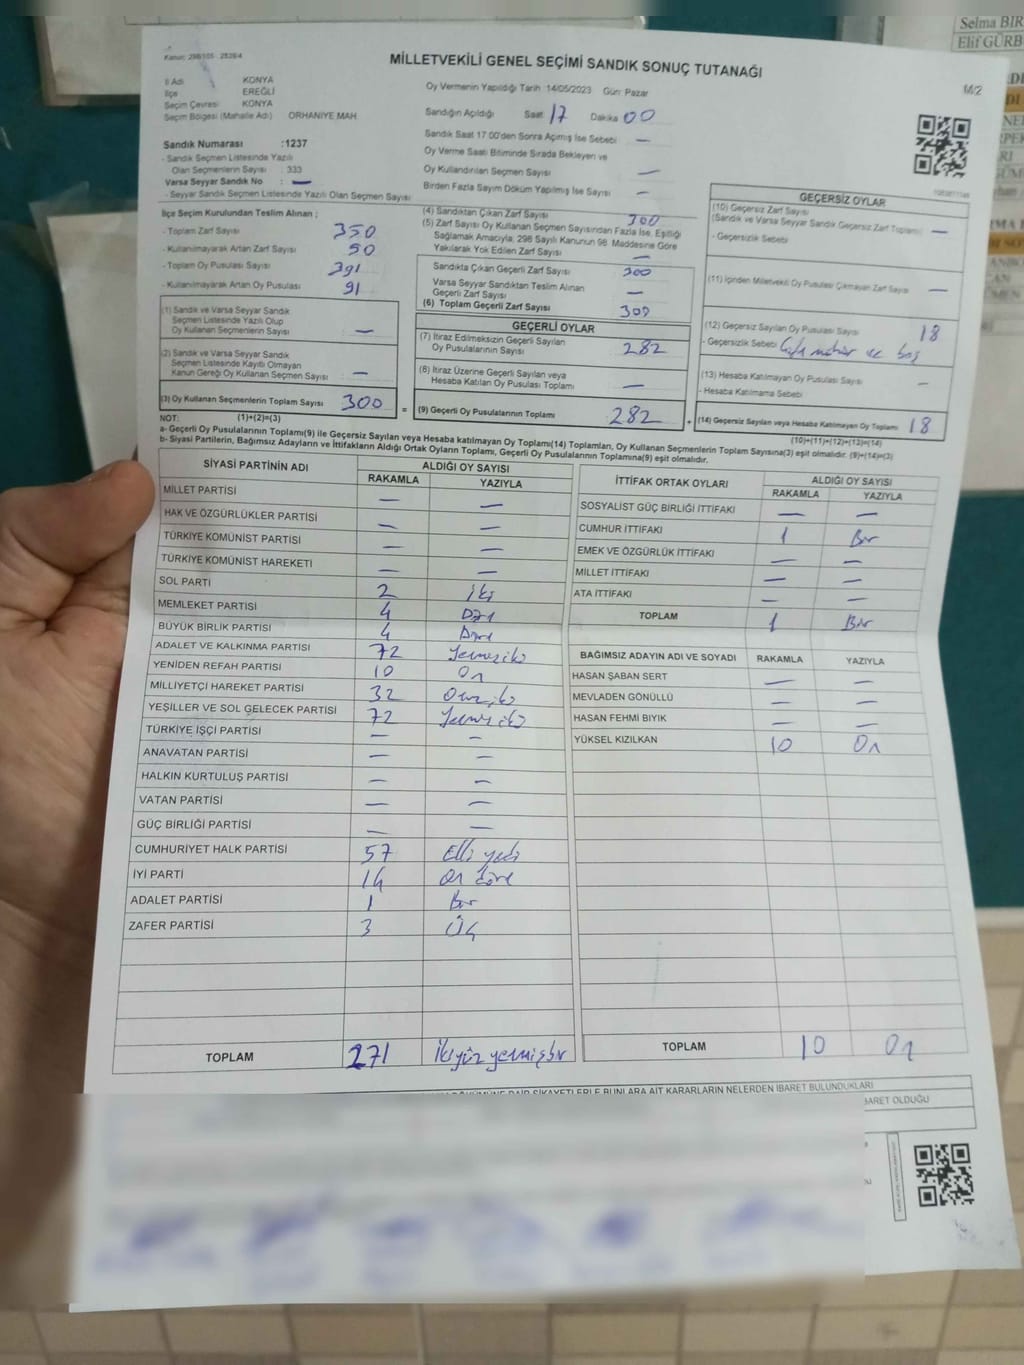 Selma BİR
Elif GÜRB
MİLLETVEKİLİ GENEL SEÇİMİ SANDIK SONUÇ TUTANAĞI
M/2
İl Adı KONYA
İlçe EREĞLİ
Seçim Çevresi KONYA
Seçim Bölgesi (Mahalle Adı) ORHANİYE MAH.
Sandık Numarası :1237
- Sandık Seçmen Listesinde Yazılı
Olan Seçmenlerin Sayısı : 333
Varsa Seyyar Sandık No : —
- Seyyar Sandık Seçmen Listesinde Yazılı Olan Seçmen Sayısı
Oy Vermenin Yapıldığı Tarih 14/05/2023 Gün: Pazar
Sandığın Açıldığı Saat 17 Dakika 00
Sandık Saat 17:00'den Sonra Açımış İse Sebebi —
Oy Verme Saati Bitiminde Sırada Bekleyen ve
Oy Kullandırılan Seçmen Sayısı —
Birden Fazla Sayım Döküm Yapılmış İse Sayısı —
İlçe Seçim Kurulundan Teslim Alınan ;
- Toplam Zarf Sayısı 350
- Kullanılmayarak Artan Zarf Sayısı 50
- Toplam Oy Pusulası Sayısı 391
- Kullanılmayarak Artan Oy Pusulası 91
(1) Sandık ve Varsa Seyyar Sandık
Seçmen Listesinde Yazılı Olup
Oy Kullanan Seçmenlerin Sayısı —
(2) Sandık ve Varsa Seyyar Sandık
Seçmen Listesinde Kayıtlı Olmayan
Kanun Gereği Oy Kullanan Seçmen Sayısı —
(3) Oy Kullanan Seçmenlerin Toplam Sayısı 300
(4) Sandıktan Çıkan Zarf Sayısı 300
(5) Zarf Sayısı Oy Kullanan Seçmen Sayısından Fazla İse, Eşitliği
Sağlamak Amacıyla, 298 Sayılı Kanunun 98. Maddesine Göre
Yakılarak Yok Edilen Zarf Sayısı —
Sandıkta Çıkan Geçerli Zarf Sayısı 300
Varsa Seyyar Sandıktan Teslim Alınan
Geçerli Zarf Sayısı —
(6) Toplam Geçerli Zarf Sayısı 300
GEÇERLİ OYLAR
(7) İtiraz Edilmeksizin Geçerli Sayılan
Oy Pusulalarının Sayısı 282
(8) İtiraz Üzerine Geçerli Sayılan veya
Hesaba Katılan Oy Pusulası Toplamı —
= (9) Geçerli Oy Pusulalarının Toplamı 282
GEÇERSİZ OYLAR
(10) Geçersiz Zarf Sayısı
(Sandık ve Varsa Seyyar Sandık Geçersiz Zarf Toplamı) —
- Geçersizlik Sebebi
(11) İçinden Milletvekili Oy Pusulası Çıkmayan Zarf Sayısı —
(12) Geçersiz Sayılan Oy Pusulası Sayısı 18
- Geçersizlik Sebebi Çift mühür ve boş
(13) Hesaba Katılmayan Oy Pusulası Sayısı —
- Hesaba Katılmama Sebebi
+ (14) Geçersiz Sayılan veya Hesaba Katılmayan Oy Toplamı 18
NOT: (1)+(2)=(3)
(10)+(11)+(12)+(13)=(14)
a- Geçerli Oy Pusulalarının Toplamı(9) ile Geçersiz Sayılan veya Hesaba katılmayan Oy Toplamı(14) Toplamları, Oy Kullanan Seçmenlerin Toplam Sayısına(3) eşit olmalıdır. (9)+(14)=(3)
b- Siyasi Partilerin, Bağımsız Adayların ve İttifakların Aldığı Ortak Oyların Toplamı, Geçerli Oy Pusulalarının Toplamına(9) eşit olmalıdır.
SİYASİ PARTİNİN ADI ALDIĞI OY SAYISI
RAKAMLA YAZIYLA
MİLLET PARTİSİ — —
HAK VE ÖZGÜRLÜKLER PARTİSİ — —
TÜRKİYE KOMÜNİST PARTİSİ — —
TÜRKİYE KOMÜNİST HAREKETİ — —
SOL PARTİ 2 İki
MEMLEKET PARTİSİ 4 Dört
BÜYÜK BİRLİK PARTİSİ 4 Dört
ADALET VE KALKINMA PARTİSİ 72 Yetmişiki
YENİDEN REFAH PARTİSİ 10 On
MİLLİYETÇİ HAREKET PARTİSİ 32 Otuziki
YEŞİLLER VE SOL GELECEK PARTİSİ 72 Yetmişiki
TÜRKİYE İŞÇİ PARTİSİ — —
ANAVATAN PARTİSİ — —
HALKIN KURTULUŞ PARTİSİ — —
VATAN PARTİSİ — —
GÜÇ BİRLİĞİ PARTİSİ — —
CUMHURİYET HALK PARTİSİ 57 Elli yedi
İYİ PARTİ 14 On dört
ADALET PARTİSİ 1 Bir
ZAFER PARTİSİ 3 Üç
TOPLAM 271 İkiyüz yetmişbir
İTTİFAK ORTAK OYLARI ALDIĞI OY SAYISI
RAKAMLA YAZIYLA
SOSYALİST GÜÇ BİRLİĞİ İTTİFAKI — —
CUMHUR İTTİFAKI 1 Bir
EMEK VE ÖZGÜRLÜK İTTİFAKI — —
MİLLET İTTİFAKI — —
ATA İTTİFAKI — —
TOPLAM 1 Bir
BAĞIMSIZ ADAYIN ADI VE SOYADI RAKAMLA YAZIYLA
HASAN ŞABAN SERT — —
MEVLADEN GÖNÜLLÜ — —
HASAN FEHMİ BIYIK — —
YÜKSEL KIZILKAN 10 On
TOPLAM 10 On
DAİR ŞİKAYETLERLE BUNLARA AİT KARARLARIN NELERDEN İBARET BULUNDUKLARI
BARET OLDUĞU